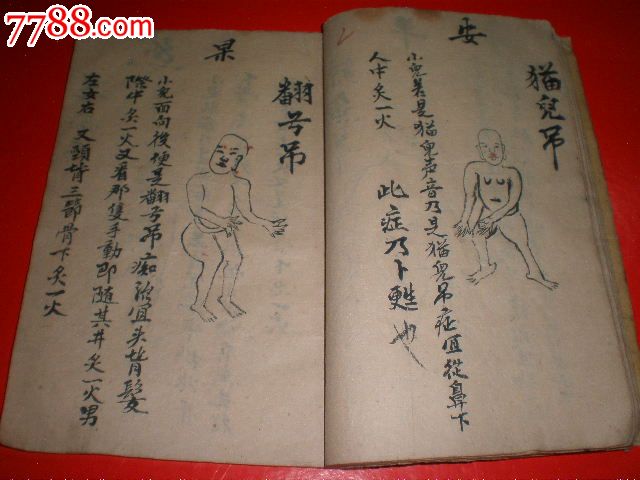 7788.com
中国收藏热线
妥
猫兒吊
小兒若是猫兒声音乃是猫兒吊症值從鼻下
人中炙一火
此症乃卜甦也
果
翻弓吊
小兒面向後便是翻弓吊痴治宜头背髮
際中炙一火又看那隻手動即随其井炙一火男
左女右 又頸背三節骨下炙一火